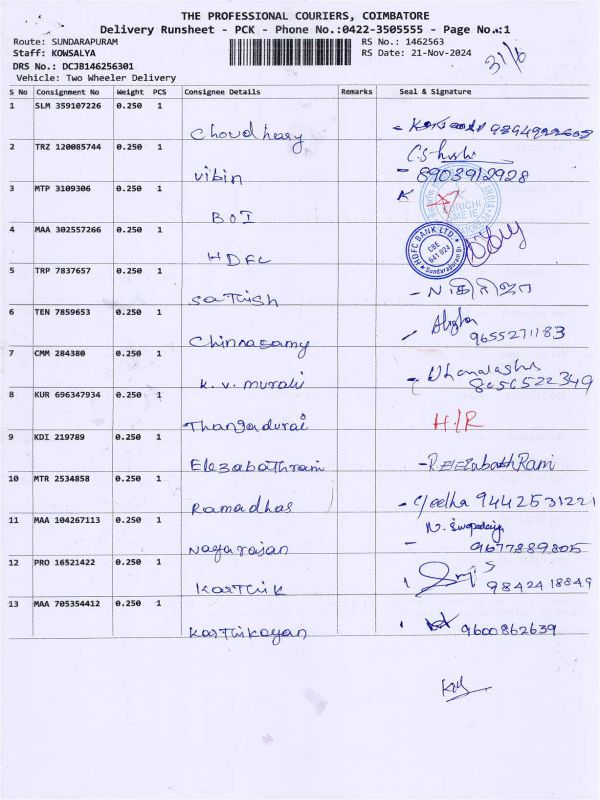 THE PROFESSIONAL COURIERS, COIMBATORE
Delivery Runsheet - PCK - Phone No.:0422-3505555 - Page No.:1
Route: SUNDARAPURAM RS No.: 1462563
Staff: KOWSALYA RS Date: 21-Nov-2024
DRS No.: DCJB146256301
31/6
Vehicle: Two Wheeler Delivery
S No Consignment No Weight PCS Consignee Details Remarks Seal & Signature
1 SLM 359107226 0.250 1
Choudhary
2 TRZ 120085744 0.250 1
Vibin - 8903912928
3 MTP 3109306 0.250 1
BOI
4 MAA 302557266 0.250 1 HDFC BANK LTD. CBE 641 024 Sundarapuram Br.
HDFC
5 TRP 7837657 0.250 1
Sathish
6 TEN 7859653 0.250 1
Chinnasamy 9655271183
7 CMM 284380 0.250 1
K. V. murali 8056522349
8 KUR 696347934 0.250 1
Thangadurai H/R
9 KDI 219789 0.250 1
Elezabathrani - R. Elezabath Rani
10 MTR 2534858 0.250 1
Ramadhas - Geetha 9442531221
11 MAA 104267113 0.250 1
Nagarajan 9677889805
12 PRO 16521422 0.250 1
Karthik 9842418849
13 MAA 705354412 0.250 1
Karthikayan 9600862639